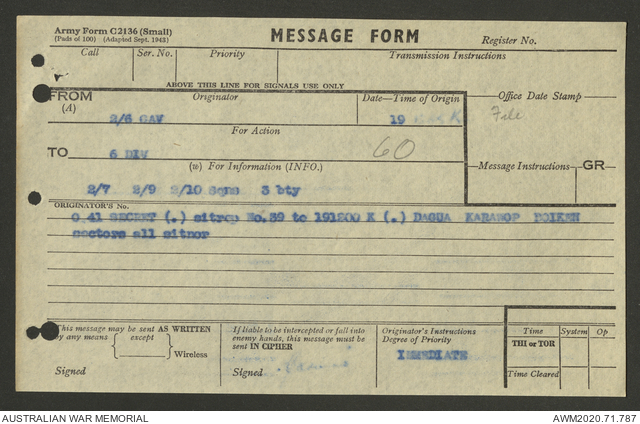 Army Form C2136 (Small)
(Pads of 100) (Adapted Sept. 1943)
MESSAGE FORM
Register No.
Call Ser. No. Priority Transmission Instructions
ABOVE THIS LINE FOR SIGNALS USE ONLY
FROM Originator Date—Time of Origin Office Date Stamp
(A) 2/6 CAV 19 K File
For Action
TO 6 DIV 60
(w) For Information (INFO.) Message Instructions GR
2/7 2/9 2/10 Sqns 3 bty
ORIGINATOR'S No.
O 41 SECRET (.) sitrep No.39 to 191200 K (.) DAGUA KARAWOP BOIKEN
sectors all sitnor
This message may be sent AS WRITTEN
by any means except
Wireless
Signed
If liable to be intercepted or fall into
enemy hands, this message must be
sent IN CIPHER
Signed
Originator's Instructions
Degree of Priority
IMMEDIATE
Time System Op
THI or TOR
Time Cleared
AUSTRALIAN WAR MEMORIAL AWM2020.71.787